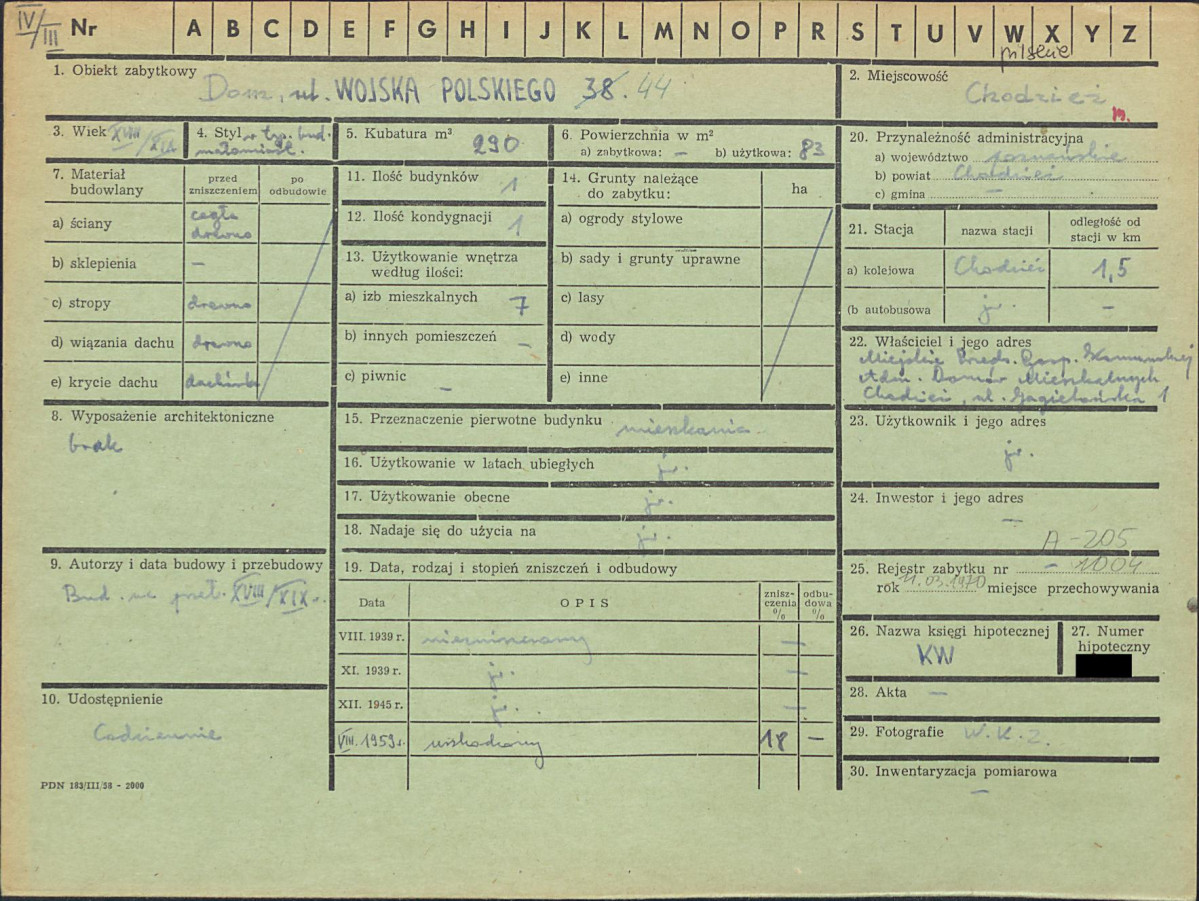 IV/III Nr A B C D E F G H I J K L M N O P R S T U V W X Y Z
pilskie
1. Obiekt zabytkowy
Dom, ul. WOJSKA POLSKIEGO 38. 44
2. Miejscowość
Chodzież
m.
3. Wiek XVIII/XIX
4. Styl w typ. bud. małomiast.
5. Kubatura m³
290
6. Powierzchnia w m²
a) zabytkowa: — b) użytkowa: 83
7. Materiał budowlany
przed zniszczeniem
po odbudowie
a) ściany
cegła
drewno
b) sklepienia —
c) stropy drewno
d) wiązania dachu drewno
e) krycie dachu dachówka
8. Wyposażenie architektoniczne
brak
9. Autorzy i data budowy i przebudowy
Bud. na przeł. XVIII/XIX w.
10. Udostępnienie
Codziennie
PDN 183/III/58 - 2000
11. Ilość budynków 1
12. Ilość kondygnacji 1
13. Użytkowanie wnętrza
według ilości:
a) izb mieszkalnych 7
b) innych pomieszczeń —
c) piwnic —
14. Grunty należące
do zabytku:
ha
a) ogrody stylowe
b) sady i grunty uprawne
c) lasy
d) wody
e) inne
15. Przeznaczenie pierwotne budynku mieszkania
16. Użytkowanie w latach ubiegłych jw.
17. Użytkowanie obecne jw.
18. Nadaje się do użycia na jw.
19. Data, rodzaj i stopień zniszczeń i odbudowy
Data
OPIS
znisz-czenia %
odbu-dowa %
VIII. 1939 r. nienaruszony —
XI. 1939 r. jw. —
XII. 1945 r. jw. —
VIII. 1959 r. uszkodzony 18 —
20. Przynależność administracyjna
a) województwo poznańskie
b) powiat Chodzież
c) gmina —
21. Stacja
nazwa stacji
odległość od stacji w km
a) kolejowa Chodzież 1,5
(b autobusowa jw. —
22. Właściciel i jego adres
Miejskie Przeds. Gosp. Komunalnej
Adm. Domów Mieszkalnych
Chodzież, ul. Jagiellońska 1
23. Użytkownik i jego adres
jw.
24. Inwestor i jego adres
—
A-205
25. Rejestr zabytku nr — 1004
rok 11.03.1970 miejsce przechowywania
26. Nazwa księgi hipotecznej
KW
27. Numer
hipoteczny
28. Akta —
29. Fotografie W.K.Z.
30. Inwentaryzacja pomiarowa
—